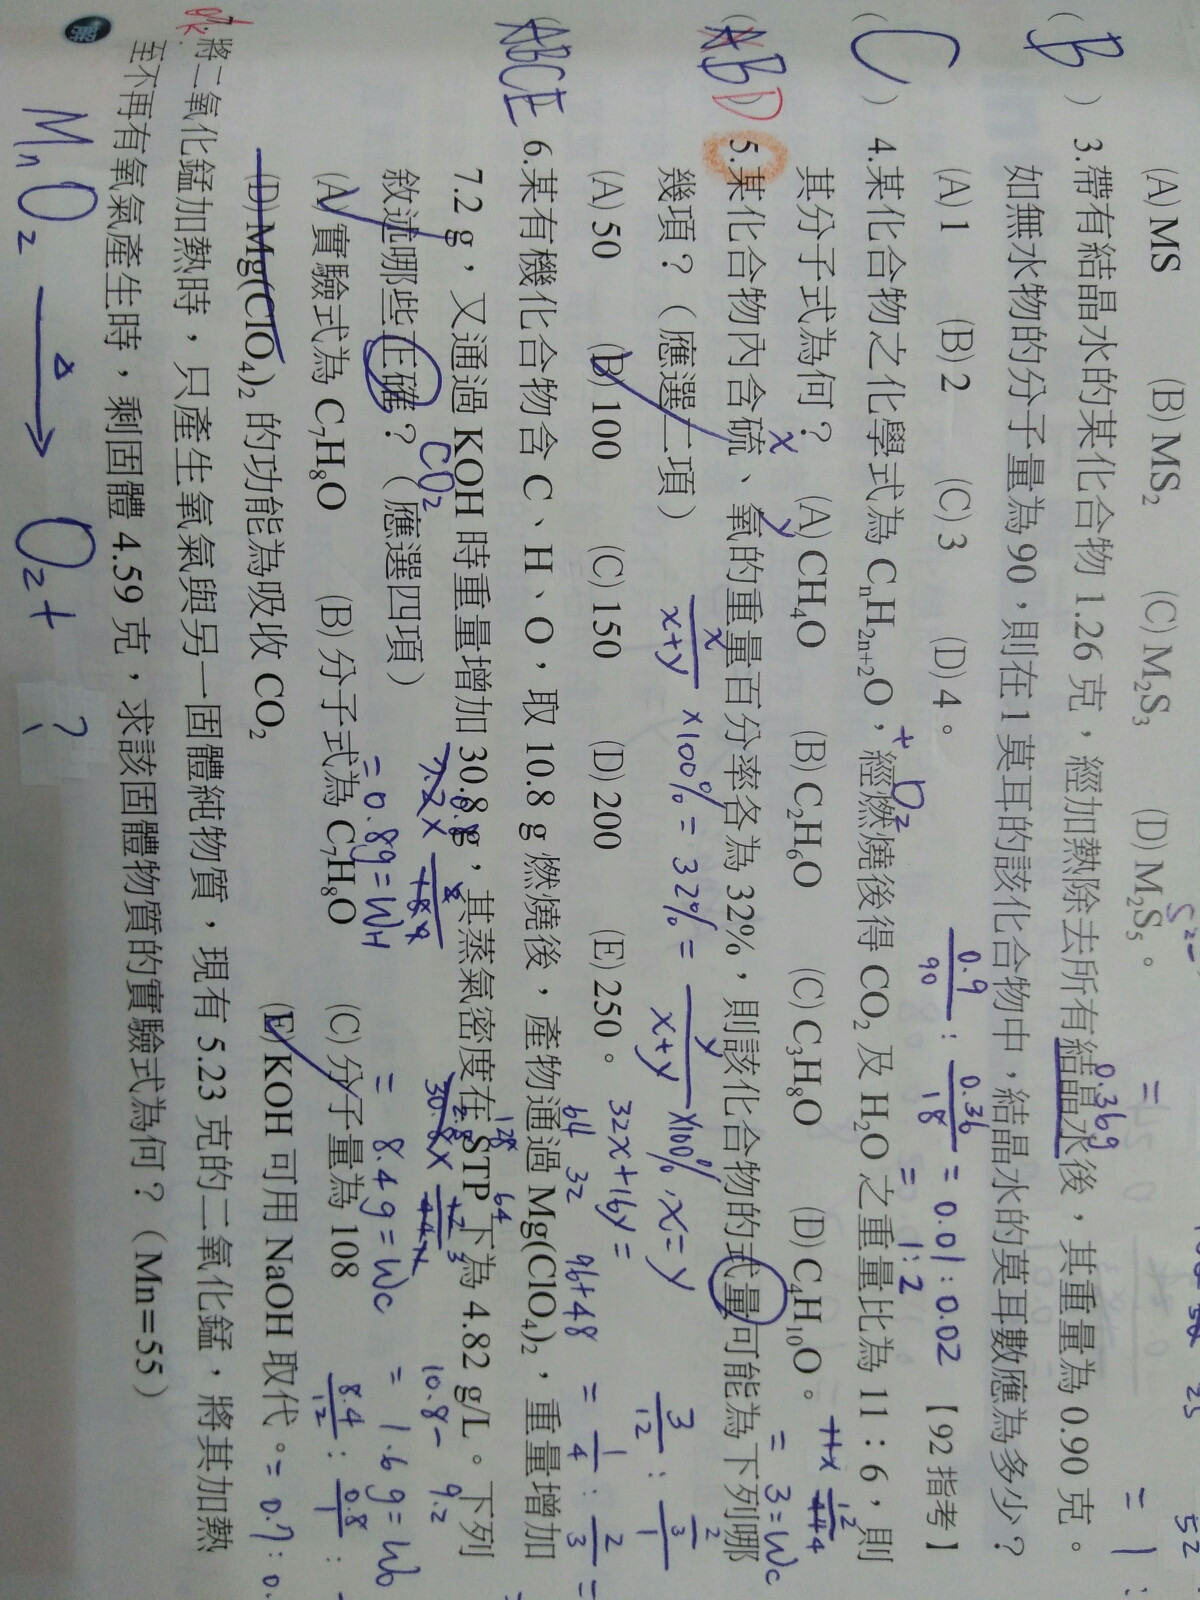 (A) MS (B) MS₂ (C) M₂S₃ (D) M₂S₅。
( B ) 3.帶有結晶水的某化合物 1.26 克，經加熱除去所有結晶水後，其重量為 0.90 克。
0.36g
如無水物的分子量為 90，則在 1 莫耳的該化合物中，結晶水的莫耳數應為多少？
(A) 1 (B) 2 (C) 3 (D) 4。 【92 指考】
0.9/90 : 0.36/18 = 0.01 : 0.02
= 1:2
( C ) 4.某化合物之化學式為 CₙH₂ₙ₊₂O，經燃燒後得 CO₂ 及 H₂O 之重量比為 11：6，則
+ O₂
其分子式為何？ (A) CH₄O (B) C₂H₆O (C) C₃H₈O (D) C₄H₁₀O。
11× 12/44 = 3 = Wc
3/12 :
(ABD 5.某化合物內含硫、氧的重量百分率各為 32%，則該化合物的式量可能為下列哪
x y
幾項？（應選二項）
x/x+y ×100% = 32% = y/x+y ×100% x=y
(A) 50 (B) 100 (C) 150 (D) 200 (E) 250。
32x+16y =
64 32 96+48
128 64
= 1/4 : 2/3 =
(ABCE 6.某有機化合物含 C、H、O，取 10.8 g 燃燒後，產物通過 Mg(ClO₄)₂，重量增加
7.2 g，又通過 KOH 時重量增加 30.8 g，其蒸氣密度在 STP 下為 4.82 g/L。下列
CO₂
敘述哪些正確？（應選四項）
= 0.8g = WH
= 8.4g = Wc
10.8-9.2
= 1.6g = Wo
(A) 實驗式為 C₇H₈O (B) 分子式為 C₇H₈O (C) 分子量為 108
8.4/12 : 0.8/1 :
(D) Mg(ClO₄)₂ 的功能為吸收 CO₂ (E) KOH 可用 NaOH 取代。
= 0.7 : 0.
ok.
將二氧化錳加熱時，只產生氧氣與另一固體純物質，現有 5.23 克的二氧化錳，將其加熱
至不再有氧氣產生時，剩固體 4.59 克，求該固體物質的實驗式為何？（Mn＝55）
MnO₂ →Δ O₂ + ?